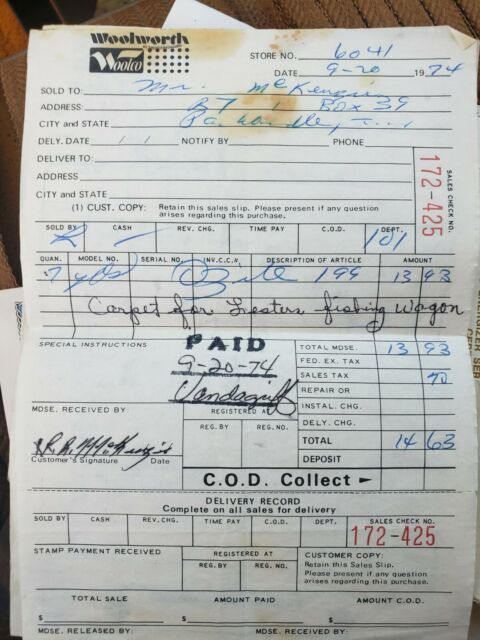 Woolworth
Woolco
STORE NO. 6041
DATE 9-20 1974
SOLD TO: Mr. McKenzie
ADDRESS: RT 1 Box 39
CITY AND STATE
DELY. DATE / / NOTIFY BY PHONE
DELIVER TO:
ADDRESS
CITY and STATE
SALES CHECK NO.
172-425
(1) CUST. COPY: Retain this sales slip. Please present if any question arises regarding this purchase.
SOLD BY CASH REV. CHG. TIME PAY C.O.D. DEPT. 101
QUAN. MODEL NO. SERIAL NO. INV.C.C.# DESCRIPTION OF ARTICLE AMOUNT
7 yds 199 13 93
Carpet for Lesters fishing Wagon
SPECIAL INSTRUCTIONS
PAID
9-20-74
Vandagriff
TOTAL MDSE. 13 93
FED. EX. TAX
SALES TAX 70
REPAIR OR
INSTAL. CHG.
DELY. CHG.
TOTAL 14 63
DEPOSIT
MDSE. RECEIVED BY:
REGISTERED AT
REG. BY REG. NO.
Customer's Signature Date
C.O.D. Collect
DELIVERY RECORD
Complete on all sales for delivery
SOLD BY CASH REV. CHG. TIME PAY C.O.D. DEPT. SALES CHECK NO.
172-425
STAMP PAYMENT RECEIVED
REGISTERED AT
REG. BY REG. NO.
CUSTOMER COPY:
Retain this Sales Slip.
Please present if any question
arises regarding this purchase.
TOTAL SALE AMOUNT PAID AMOUNT C.O.D.
$ $ $
MDSE. RELEASED BY: MDSE. RECEIVED BY: